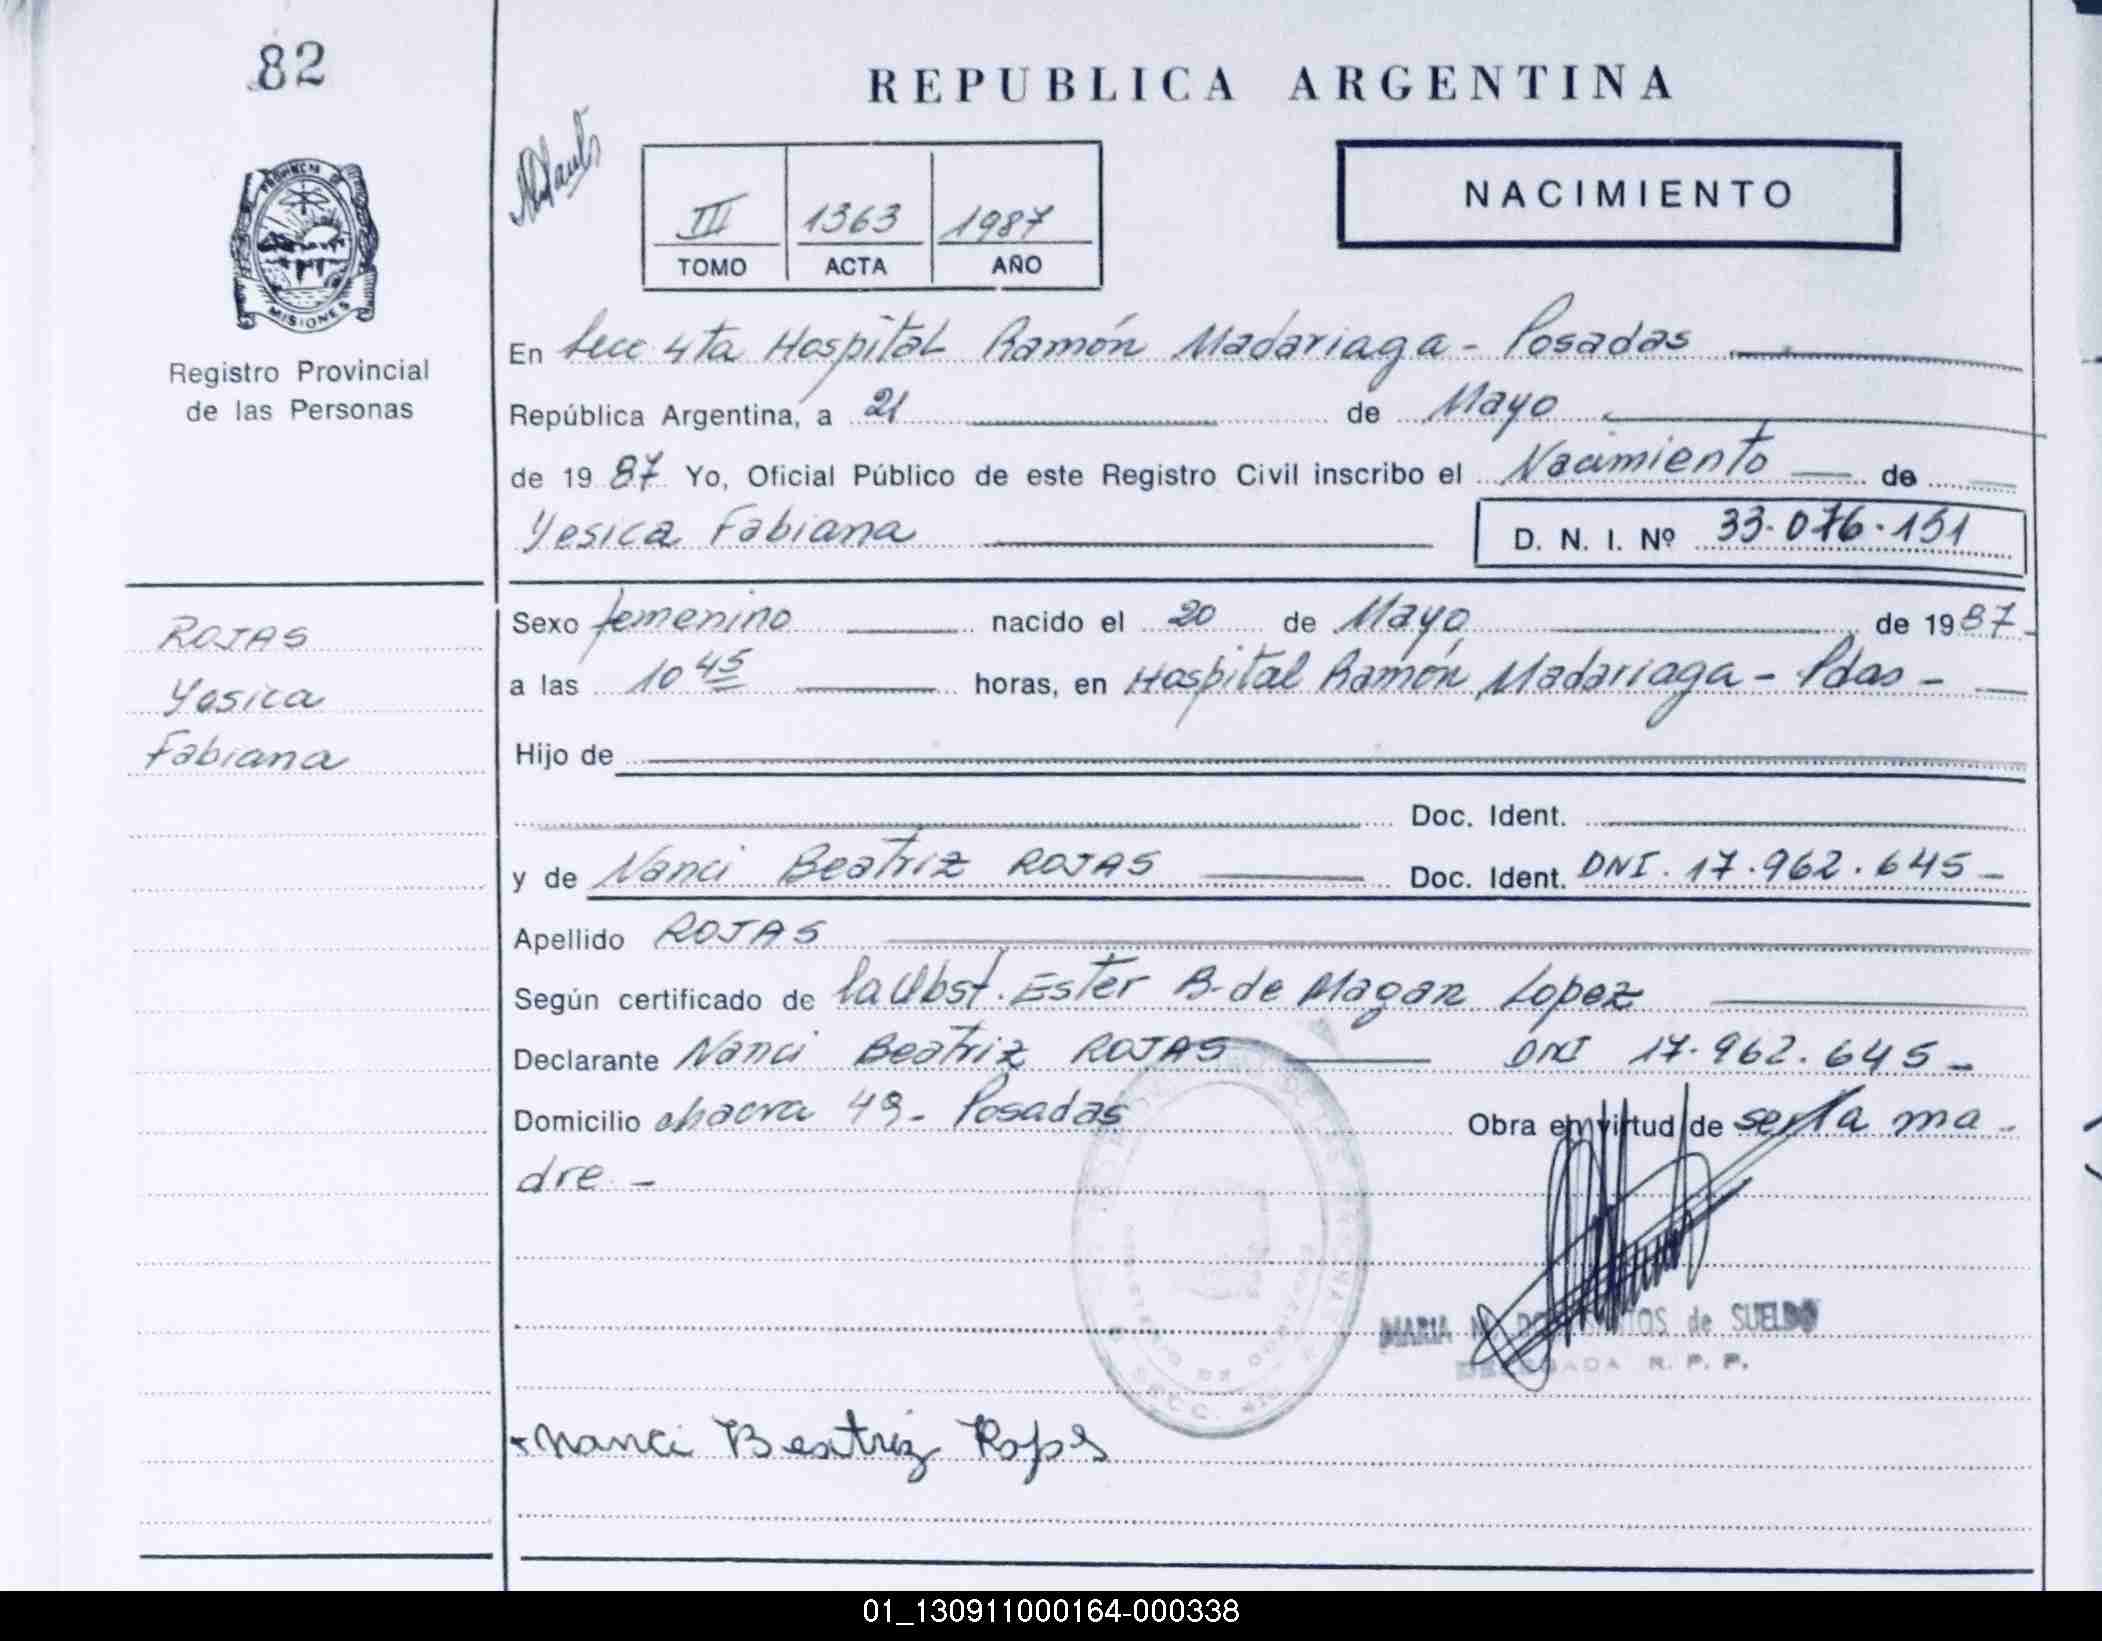 82
REPUBLICA ARGENTINA
III 1363 1987
TOMO ACTA AÑO
NACIMIENTO
PROVINCIA DE
MISIONES
Registro Provincial
de las Personas
En Secc 4ta Hospital Ramón Madariaga - Posadas
República Argentina, a 21 de Mayo
de 1987 Yo, Oficial Público de este Registro Civil inscribo el Nacimiento de
Yesica Fabiana D. N. I. Nº 33.076.151
ROJAS
Yesica
Fabiana
Sexo femenino nacido el 20 de Mayo de 1987-
a las 10 45 horas, en Hospital Ramón Madariaga - Pdas -
Hijo de
Doc. Ident.
y de Nanci Beatriz ROJAS Doc. Ident. DNI. 17.962.645-
Apellido ROJAS
Según certificado de la Obst. Ester B. de Magan Lopez
Declarante Nanci Beatriz ROJAS DNI 17.962.645-
Domicilio chacra 49- Posadas Obra en virtud de ser la ma-
dre.-
MARIA de SUELDO
DELEGADA R. P. P.
Nanci Beatriz Rojas
01_130911000164-000338